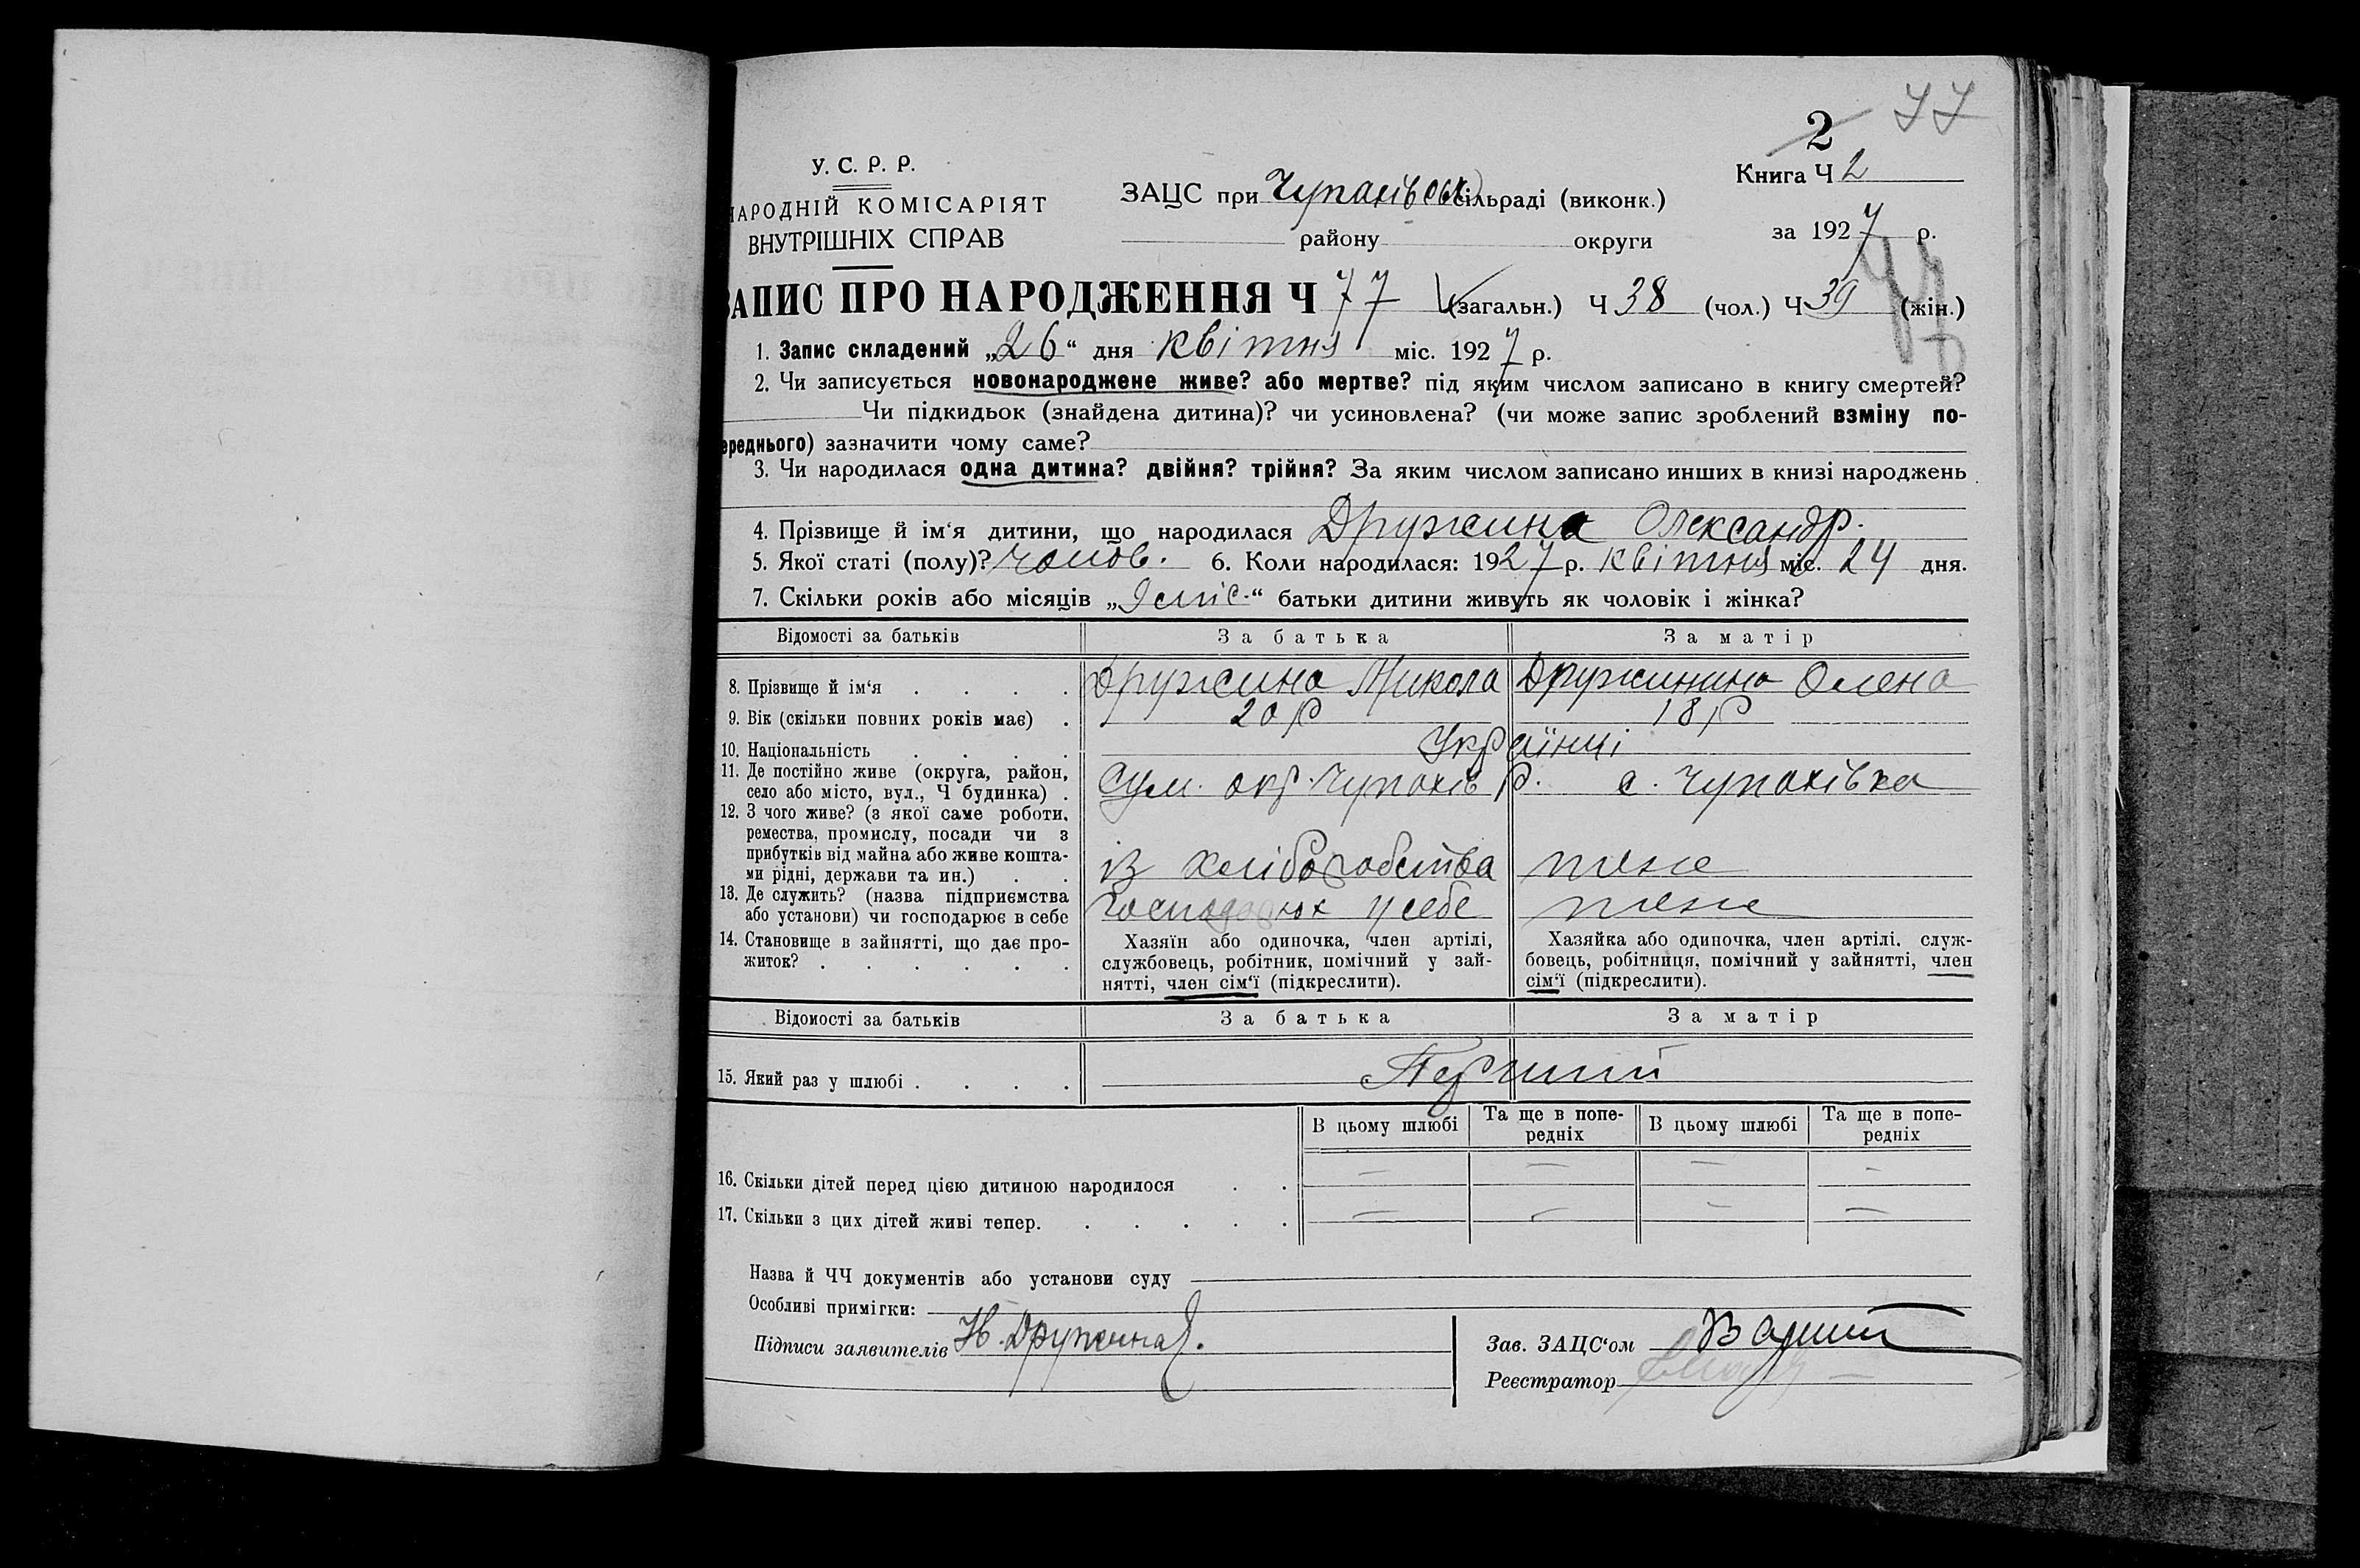 2 77
У. С. Р. Р.
Книга Ч 2
НАРОДНІЙ КОМІСАРІЯТ
ЗАЦС при Чупахівськ сільраді (виконк.)
ВНУТРІШНІХ СПРАВ
району округи
за 1927 р.
77
ЗАПИС ПРО НАРОДЖЕННЯ Ч 77 (загальн.) Ч 38 (чол.) Ч 39 (жін.)
1. Запис складений „26“ дня квітня міс. 1927 р.
2. Чи записується новонароджене живе? або мертве? під яким числом записано в книгу смертей?
Чи підкидьок (знайдена дитина)? чи усиновлена? (чи може запис зроблений взміну по-
ереднього) зазначити чому саме?
3. Чи народилася одна дитина? двійня? трійня? За яким числом записано инших в книзі народжень
4. Прізвище й ім‘я дитини, що народилася Дружина Олександр.
5. Якої статі (полу)? чолов. 6. Коли народилася: 1927 р. квітня міс. 24 дня.
7. Скільки років або місяців „9 міс.“ батьки дитини живуть як чоловік і жінка?
Відомості за батьків За батька За матір
8. Прізвище й ім‘я . . . . Дружина Микола Дружинина Олена
9. Вік (скільки повних років має) . 20 р 18 р
10. Національність . . . . Українці
11. Де постійно живе (округа, район,
село або місто, вул., Ч будинка) . Сум. окр. Чупахів р. с. Чупахівка
12. З чого живе? (з якої саме роботи,
ремества, промислу, посади чи з
прибутків від майна або живе кошта-
ми рідні, держави та ин.) . . із хліборобства теже
13. Де служить? (назва підприємства
або установи) чи господарює в себе у себе теже
14. Становище в зайнятті, що дає про-
житок? . . . . . .
Хазяїн або одиночка, член артілі,
службовець, робітник, помічний у зай-
нятті, член сім‘ї (підкреслити).
Хазяйка або одиночка, член артілі, служ-
бовець, робітниця, помічний у зайнятті, член
сім‘ї (підкреслити).
Відомості за батьків За батька За матір
15. Який раз у шлюбі . . . . Перший
В цьому шлюбі Та ще в попе-
редніх В цьому шлюбі Та ще в попе-
редніх
16. Скільки дітей перед цією дитиною народилося . . — — — —
17. Скільки з цих дітей живі тепер. . . . . . — — — —
Назва й ЧЧ документів або установи суду
Особливі примітки:
Підписи заявителів Н. Дружина
Зав. ЗАЦС‘ом
Реєстратор